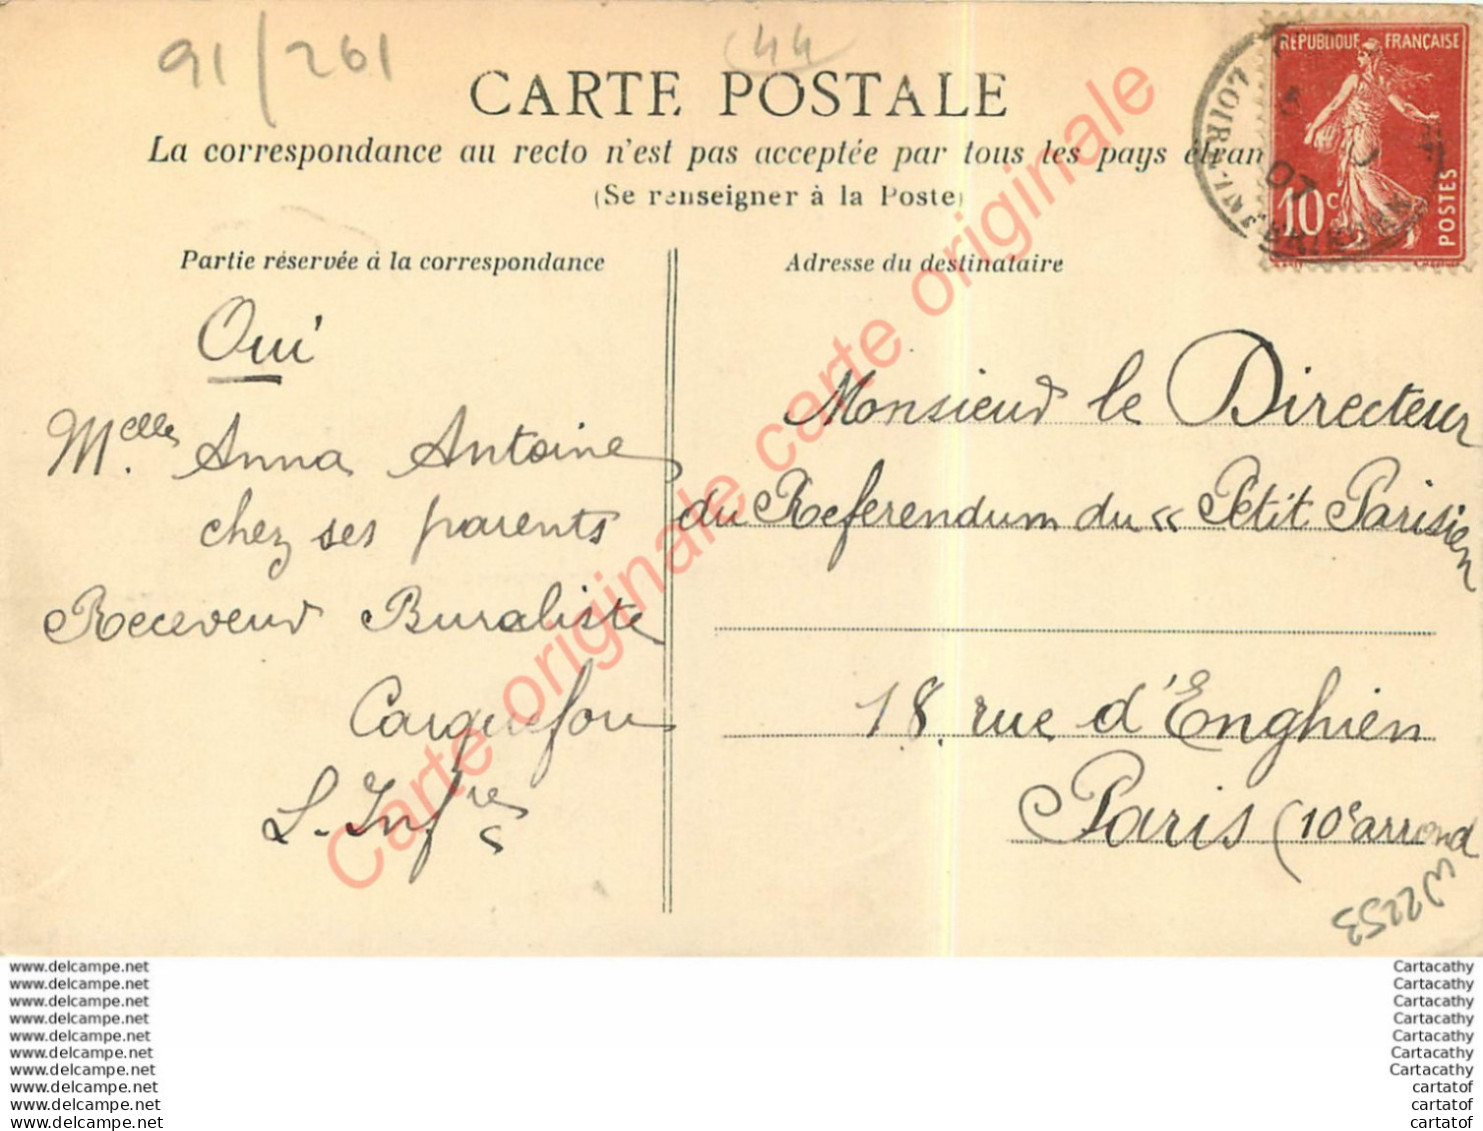 91/261
44
CARTE POSTALE
La correspondance au recto n'est pas acceptée par tous les pays étran
(Se renseigner à la Poste)
RÉPUBLIQUE FRANÇAISE
10c
POSTES
LOIRE-INFÉRIEURE
07
Partie réservée à la correspondance
Oui
Melle Anna Antoine
chez ses parents
Receveur Buraliste
Carquefou
L. Infre
Adresse du destinataire
Monsieur le Directeur
du Referendum du « Petit Parisien
18, rue d'Enghien
Paris (10e arrond
W2253
Carte originale carte originale
www.delcampe.net
www.delcampe.net
www.delcampe.net
www.delcampe.net
www.delcampe.net
www.delcampe.net
www.delcampe.net
www.delcampe.net
www.delcampe.net
www.delcampe.net
Cartacathy
Cartacathy
Cartacathy
Cartacathy
Cartacathy
Cartacathy
Cartacathy
cartatof
cartatof
cartatof